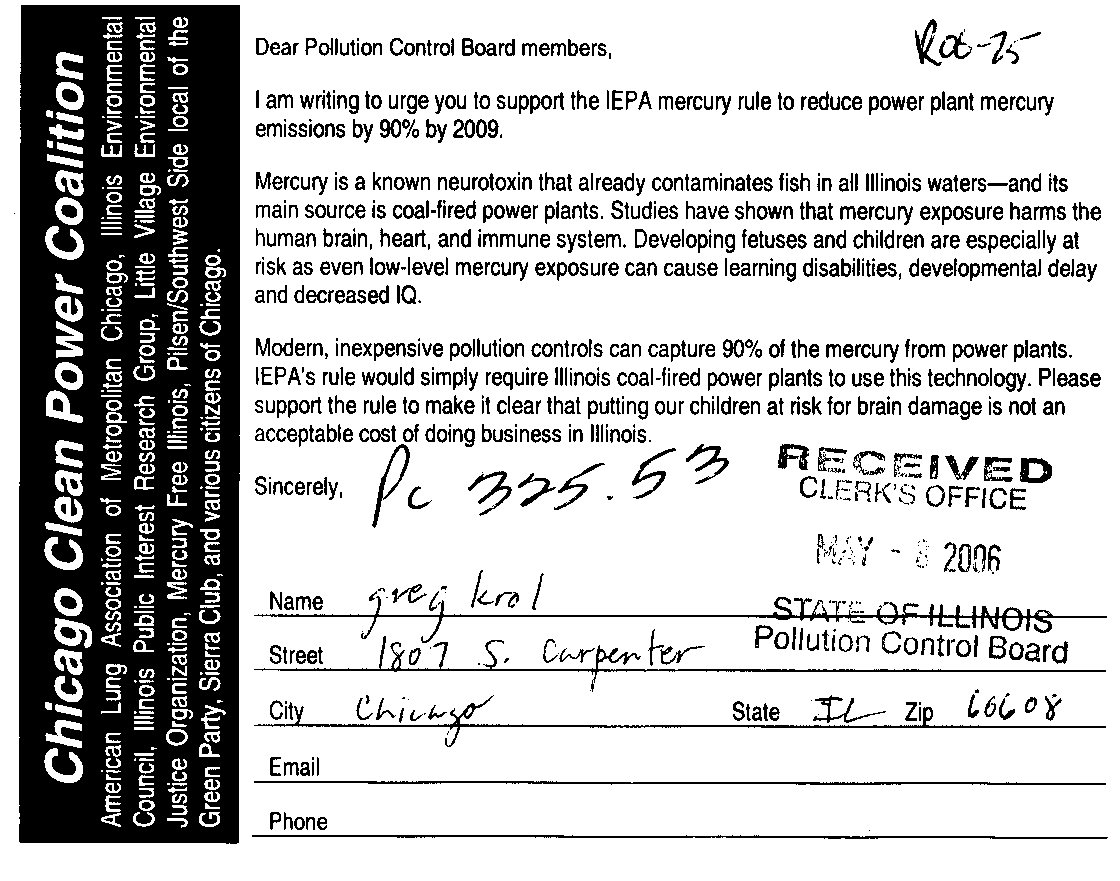 Chicago Clean Power Coalition
American Lung Association of Metropolitan Chicago, Illinois Environmental
Council, Illinois Public Interest Research Group, Little Village Environmental
Justice Organization, Mercury Free Illinois, Pilsen/Southwest Side local of the
Green Party, Sierra Club, and various citizens of Chicago.
Dear Pollution Control Board members,
I am writing to urge you to support the IEPA mercury rule to reduce power plant mercury
emissions by 90% by 2009.
Mercury is a known neurotoxin that already contaminates fish in all Illinois waters—and its
main source is coal-fired power plants. Studies have shown that mercury exposure harms the
human brain, heart, and immune system. Developing fetuses and children are especially at
risk as even low-level mercury exposure can cause learning disabilities, developmental delay
and decreased IQ.
Modern, inexpensive pollution controls can capture 90% of the mercury from power plants.
IEPA's rule would simply require Illinois coal-fired power plants to use this technology. Please
support the rule to make it clear that putting our children at risk for brain damage is not an
acceptable cost of doing business in Illinois.
Sincerely, Pc 325.53
RECEIVED
CLERK'S OFFICE
MAY - 8 2006
STATE OF ILLINOIS
Pollution Control Board
Name greg krol
Street 1807 S. Carpenter
City Chicago State IL Zip 60608
Email
Phone